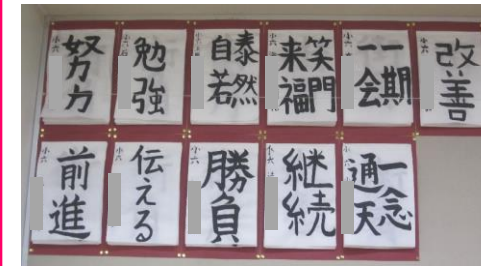 努力
小六
勉強
小六
泰然
自若
小六
笑門
来福
小六
一期
一会
小六
改善
小六
前進
小六
伝える
小六
勝負
小六
継続
小六
一念
通天
小六